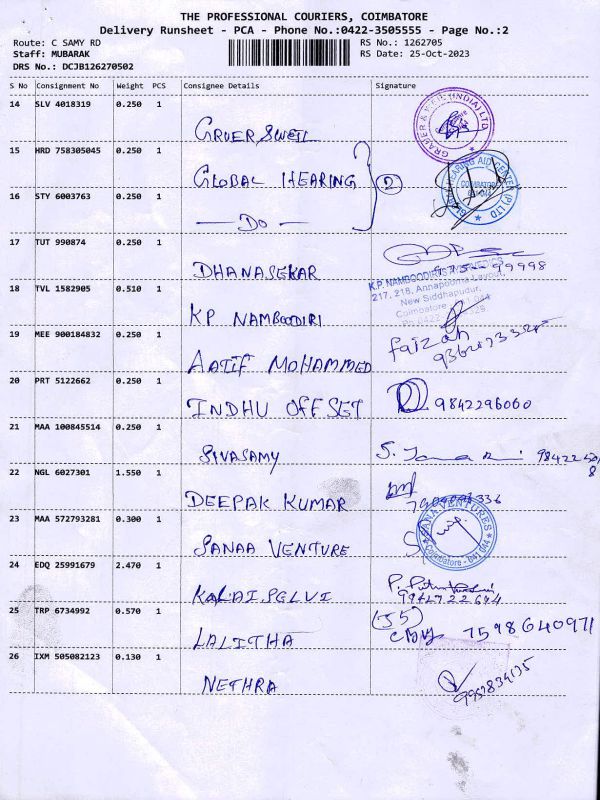 THE PROFESSIONAL COURIERS, COIMBATORE
Delivery Runsheet - PCA - Phone No.:0422-3505555 - Page No.:2
Route: C SAMY RD RS No.: 1262705
Staff: MUBARAK RS Date: 25-Oct-2023
DRS No.: DCJB126270502
S No Consignment No Weight PCS Consignee Details Signature
14 SLV 4018319 0.250 1
GRUER & WEIL (INDIA) LTD
15 HRD 758305045 0.250 1
GLOBAL HEARING 2
HEARING AID CENTER (P) LTD
COIMBATORE
16 STY 6003763 0.250 1
DO
17 TUT 990874 0.250 1
DHANASEKAR 99998
18 TVL 1582905 0.510 1
KP NAMBOODIRI
K.P. NAMBOODIRIS AYURVEDICS
217, 218, Annapoorna Layout,
New Siddhapudur,
Coimbatore - 641 044
19 MEE 900184832 0.250 1
AATIF MOHAMMED faizah
20 PRT 5122662 0.250 1
INDHU OFFSET 9842296000
21 MAA 100845514 0.250 1
SIVASAMY
22 NGL 6027301 1.550 1
DEEPAK KUMAR
23 MAA 572793281 0.300 1
SANAA VENTURE
SANA VENTURES
Coimbatore - 641 044
24 EDQ 25991679 2.470 1
KALAISELVI
25 TRP 6734992 0.570 1
LALITHA 7598640971
26 IXM 505082123 0.130 1
NETHRA